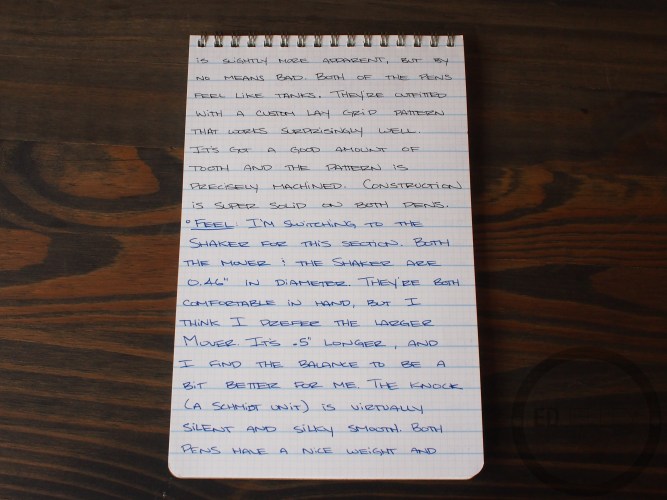 IS SLIGHTLY MORE APPARENT, BUT BY
NO MEANS BAD. BOTH OF THE PENS
FEEL LIKE TANKS. THEY'RE OUTFITTED
WITH A CUSTOM LAY GRIP PATTERN
THAT WORKS SURPRISINGLY WELL.
IT'S GOT A GOOD AMOUNT OF
TOOTH AND THE PATTERN IS
PRECISELY MACHINED. CONSTRUCTION
IS SUPER SOLID ON BOTH PENS.
° FEEL: I'M SWITCHING TO THE
SHAKER FOR THIS SECTION. BOTH
THE MOVER & THE SHAKER ARE
0.46" IN DIAMETER. THEY'RE BOTH
COMFORTABLE IN HAND, BUT I
THINK I PREFER THE LARGER
MOVER. IT'S .5" LONGER, AND
I FIND THE BALANCE TO BE A
BIT BETTER FOR ME. THE KNOCK
(A SCHMIDT UNIT) IS VIRTUALLY
SILENT AND SILKY SMOOTH. BOTH
PENS HAVE A NICE WEIGHT AND